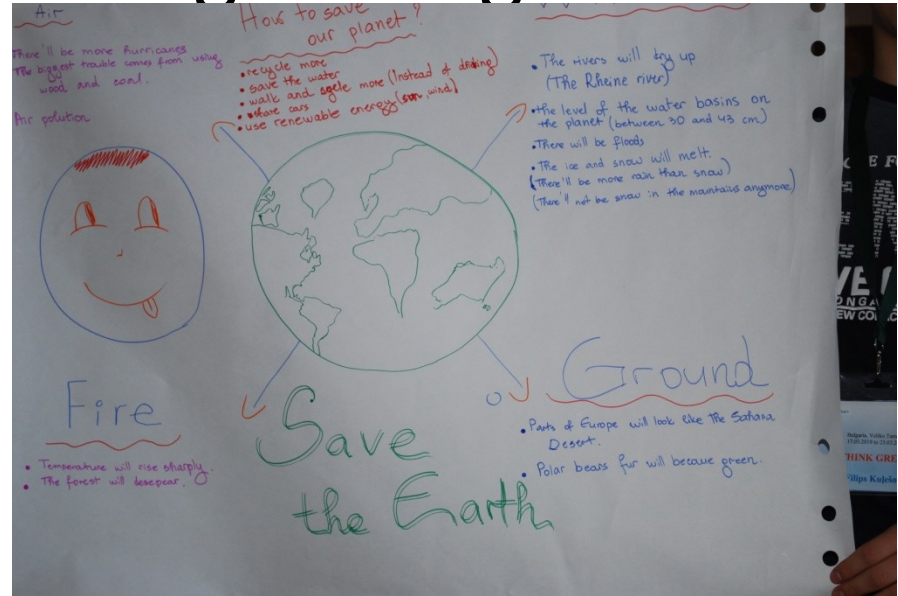 Air
There'll be more hurricanes
The biggest trouble comes from using
wood and coal.
Air polution
How to save
our planet?
• recycle more
• save the water
• walk and cycle more (Instead of driking)
• share cars
• use renewable energy (sun, wind)
• The rivers will dry up
(The Rheine river)
• the level of the water basins on
the planet (between 30 and 43 cm)
• There will be floods
• The ice and snow will melt.
(There'll be more rain than snow)
(There'll not be snow in the maintains anymore)
Fire
• Temperature will rise sharply.
• The forest will desepear.
Save
the Earth
Ground
• Parts of Europe will look like The Sahana
Desert.
• Polar bears fur will become green.
THINK GRE